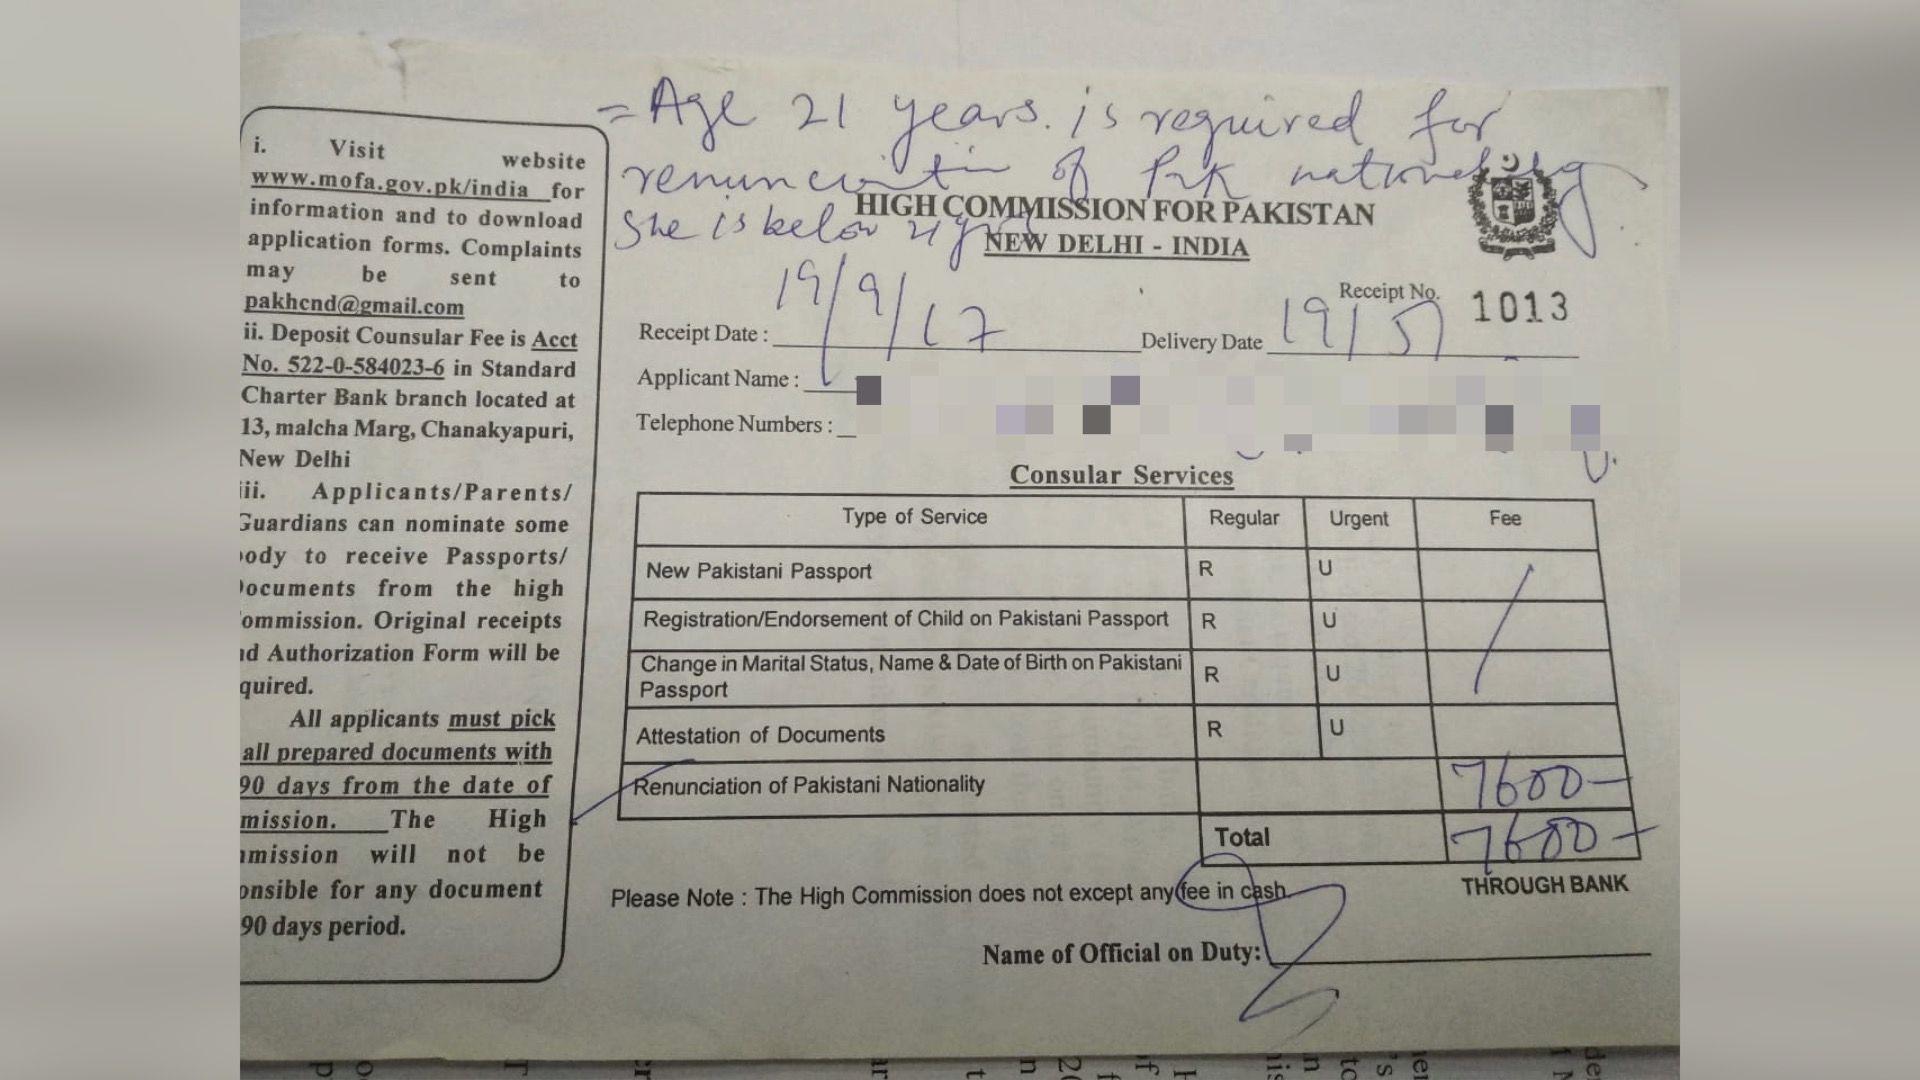 = Age 21 years. is required for
renunciation of Pak nationality
She is below 21 yrs
HIGH COMMISSION FOR PAKISTAN
NEW DELHI - INDIA
Receipt No. 1013
Receipt Date : 19/9/17 Delivery Date 19/5
Applicant Name :
Telephone Numbers :
Consular Services
Type of Service Regular Urgent Fee
New Pakistani Passport R U
Registration/Endorsement of Child on Pakistani Passport R U
Change in Marital Status, Name & Date of Birth on Pakistani
Passport R U
Attestation of Documents R U
Renunciation of Pakistani Nationality 7600-
Total 7600-
THROUGH BANK
Please Note : The High Commission does not except any fee in cash.
Name of Official on Duty:
i. Visit website
www.mofa.gov.pk/india for
information and to download
application forms. Complaints
may be sent to
pakhcnd@gmail.com
ii. Deposit Counsular Fee is Acct
No. 522-0-584023-6 in Standard
Charter Bank branch located at
13, malcha Marg, Chanakyapuri,
New Delhi
iii. Applicants/Parents/
Guardians can nominate some
ody to receive Passports/
ocuments from the high
ommission. Original receipts
nd Authorization Form will be
quired.
All applicants must pick
all prepared documents with
90 days from the date of
mission. The High
mmission will not be
onsible for any document
90 days period.